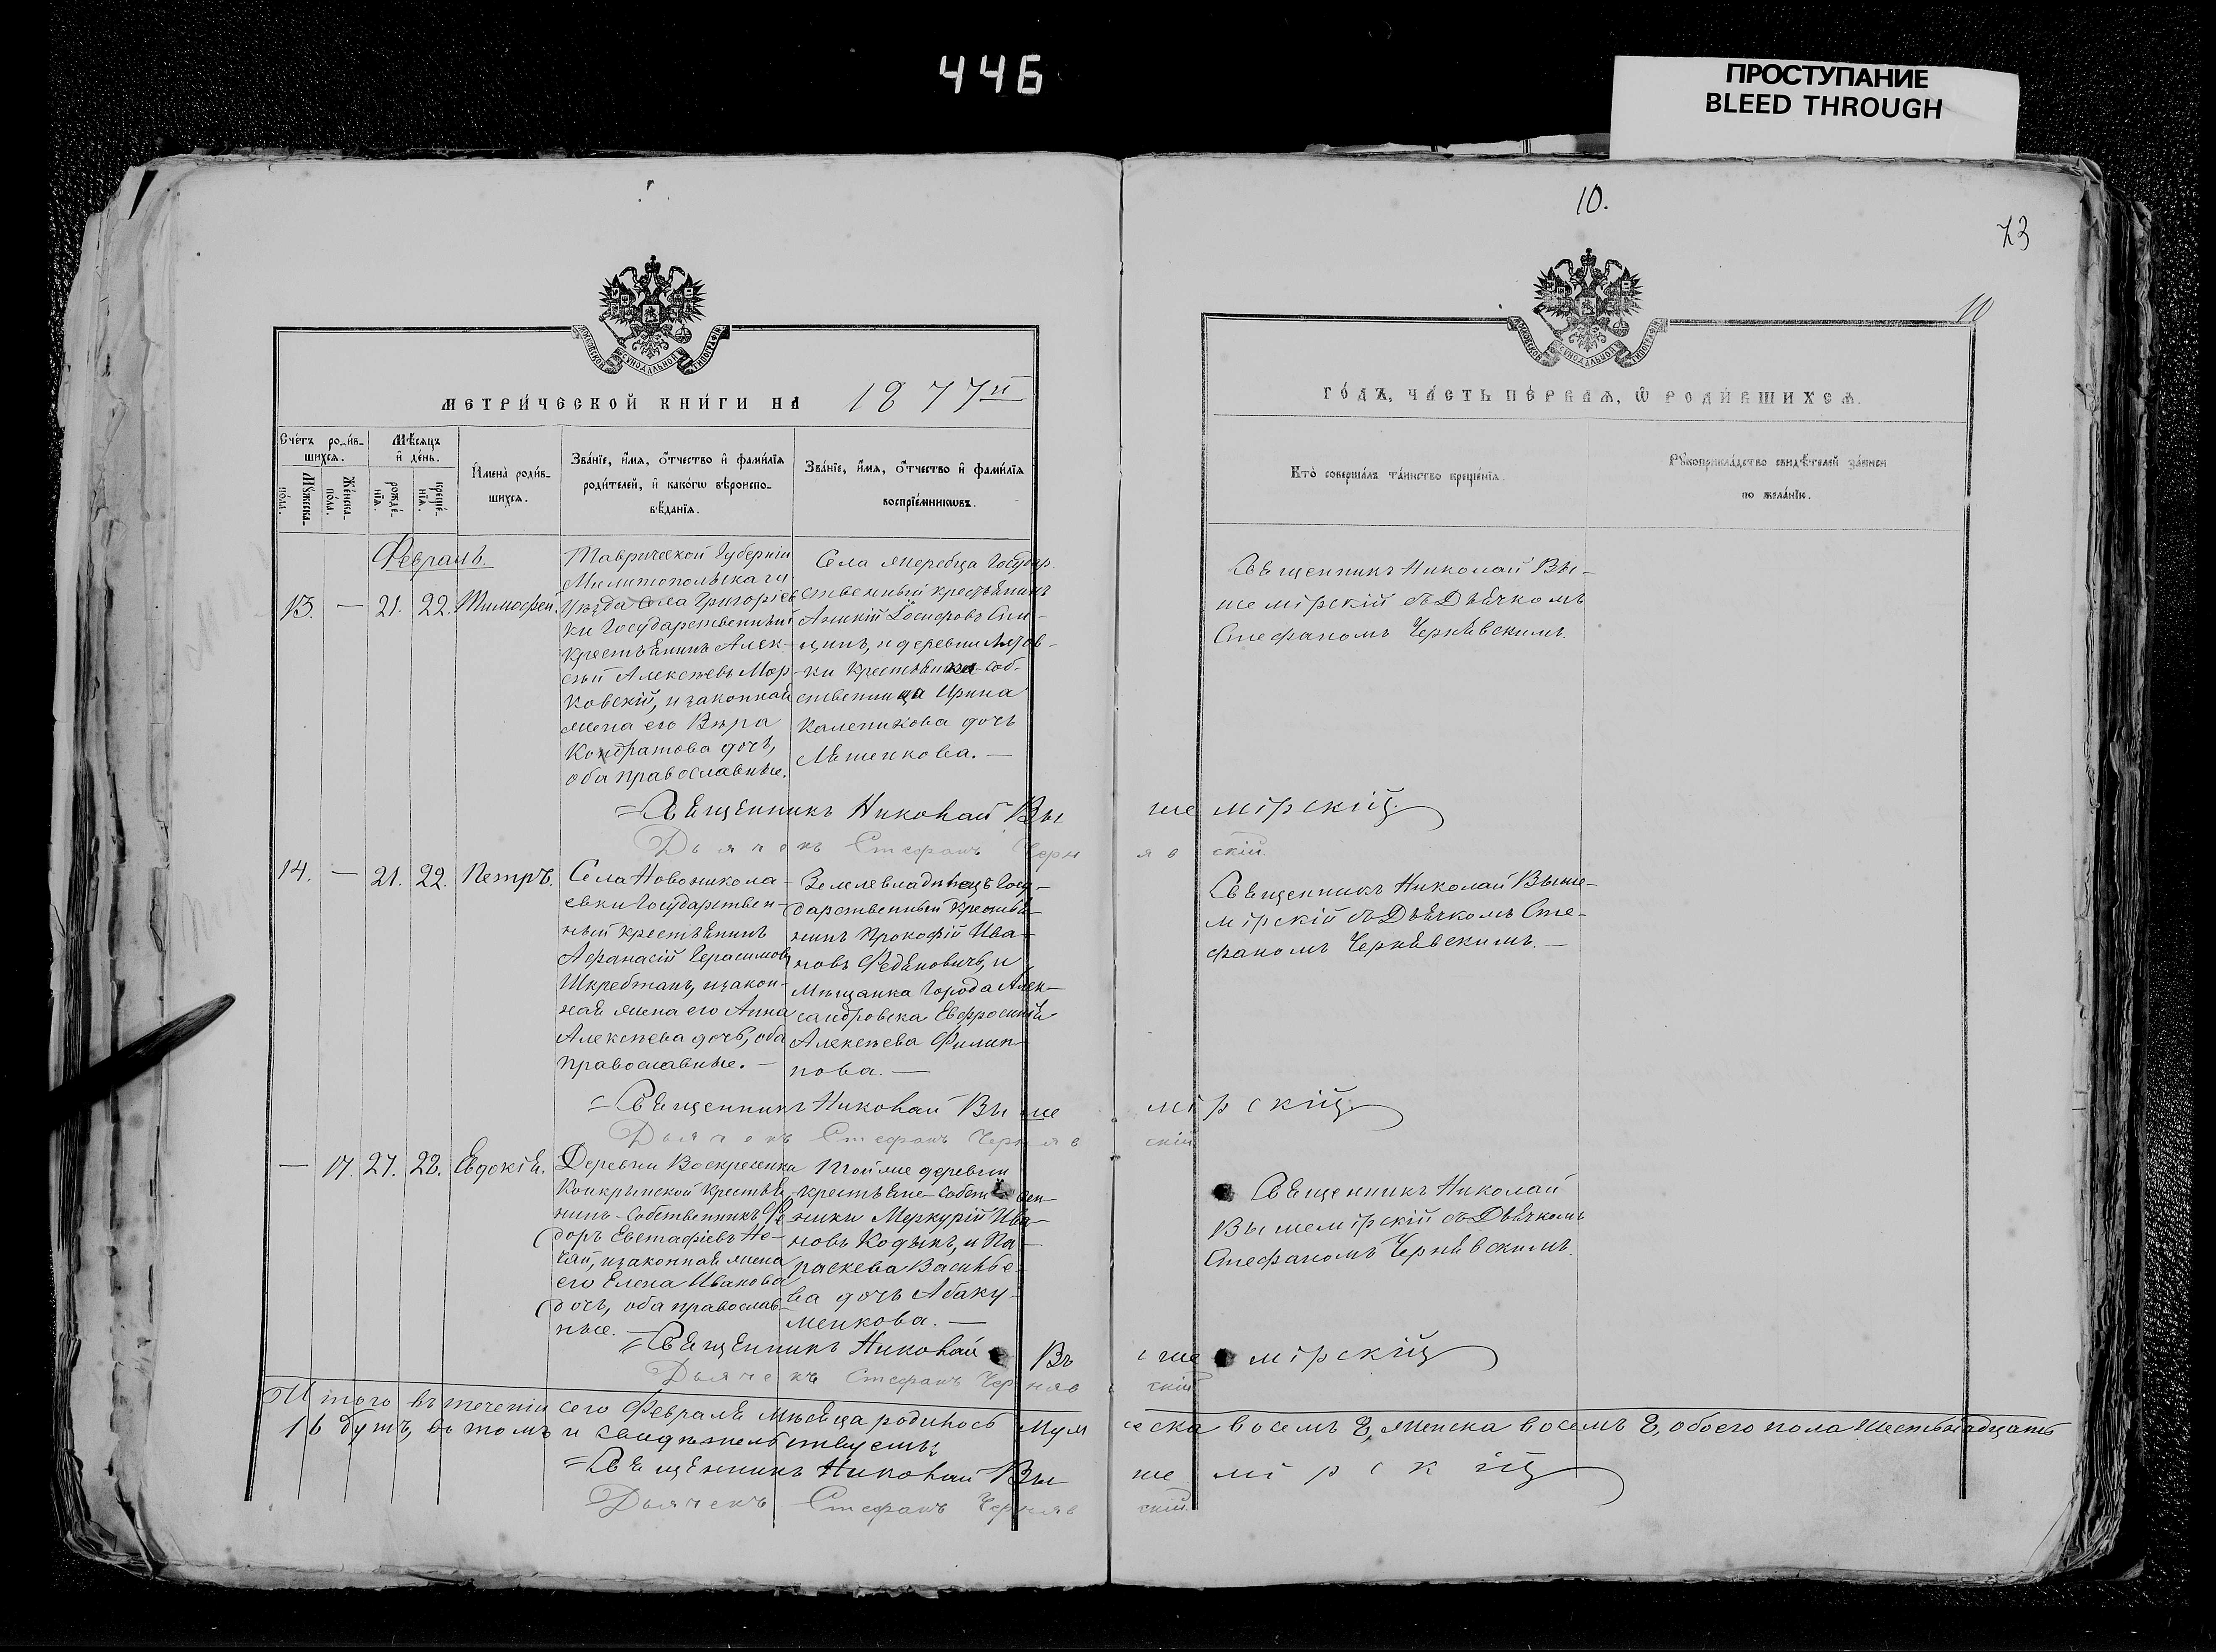 446
ПРОСТУПАНИЕ
BLEED THROUGH
10.
73
10
МЕТРИ́ЧЕСКОЙ КНИ́ГИ НА 1877й
ГО́ДЪ, ЧА́СТЬ ПЕ́РВАѦ, Ѡ РОДИ́ВШИХСѦ.
Сче́тъ роди́в-
шихсѧ.
Мꙋ́жеска
по́ла.
Же́нска
по́ла.
Мѣ́сѧцъ
и҆ де́нь.
рожде́-
нїѧ.
креще́-
нїѧ.
И҆мена̀ роди́в-
шихсѧ.
Зва́нїе, и҆́мѧ, ѻ҆́тчество и҆ фами́лїѧ
роди́телей, и҆ како́гѡ вѣроиспо-
вѣ́данїѧ.
Зва́нїе, и҆́мѧ, ѻ҆́тчество и҆ фами́лїѧ
воспрїе́мникѡвъ.
Кто̀ соверша́лъ та́инство креще́нїѧ.
Рꙋкоприкла́дство свидѣ́телей за́писи
по жела́нїю.
Февраль.
13. — 21. 22. Тимофей.
Таврической Губерніи
Мелитопольскаго
Уѣзда Села Григорьев
ки Государственный
крестьянинъ Алек-
сѣй Алексѣевъ Мор
ковскій, и законная
жена его Вѣра
Кондратова дочь,
оба православные.
Села Жеребца Государ
ственный крестьянинъ
Іосифовъ Спи-
цинъ, и деревни
ки крестьянка-соб-
ственница Ирина
Каленикова дочь
Ляшенкова. —
Священникъ Николай Вы-
шемірскій съ Дьячкомъ
Стефаномъ Чернявскимъ.
=Священникъ Николай Вышемірскій
Дьячекъ Стефанъ Чернявскій.
14. — 21. 22. Петръ.
Села Новоникола-
евки Государствен-
ный крестьянинъ
Афанасій Герасимовъ
Шкребтанъ, и закон-
ная жена его Анна
Алексѣева дочь, оба
православные. —
Землевладѣлецъ Госу-
дарственный крестья-
нинъ Прокофій Ива-
новъ Федяновичъ, и
Мѣщанка города Алек-
сандровска Евфросинія
Алексѣева Филип-
пова. —
Священникъ Николай Выше-
мірскій съ Дьячкомъ Сте-
фаномъ Чернявскимъ. —
=Священникъ Николай Вышемірскій
Дьячекъ Стефанъ Чернявскій
— 17. 27. 28. Евдокія.
Деревни Воскресенки
Конкринской крестья
нинъ-собственникъ Фе
доръ Евстафіевъ Не-
чай, и законная жена
его Елена Иванова
дочь, оба православ-
ные. —
Той же деревни
крестьяне-собствен-
ники Меркурій Ива-
новъ Кодынъ, и Па-
раскева Василье-
ва дочь Абаку-
менкова. —
Священникъ Николай
Вышемірскій съ Дьячкомъ
Стефаномъ Чернявскимъ.
=Священникъ Николай Вышемірскій
Дьячекъ Стефанъ Чернявскій
Итого въ теченіи сего Февраля мѣсяца родилось мужеска восемь 8, женска восемь 8, обоего пола шестьнадцать
16 душъ, въ томъ и свидѣтельствуемъ
=Священникъ Николай Вышемірскій
Дьячекъ Стефанъ Чернявскій.